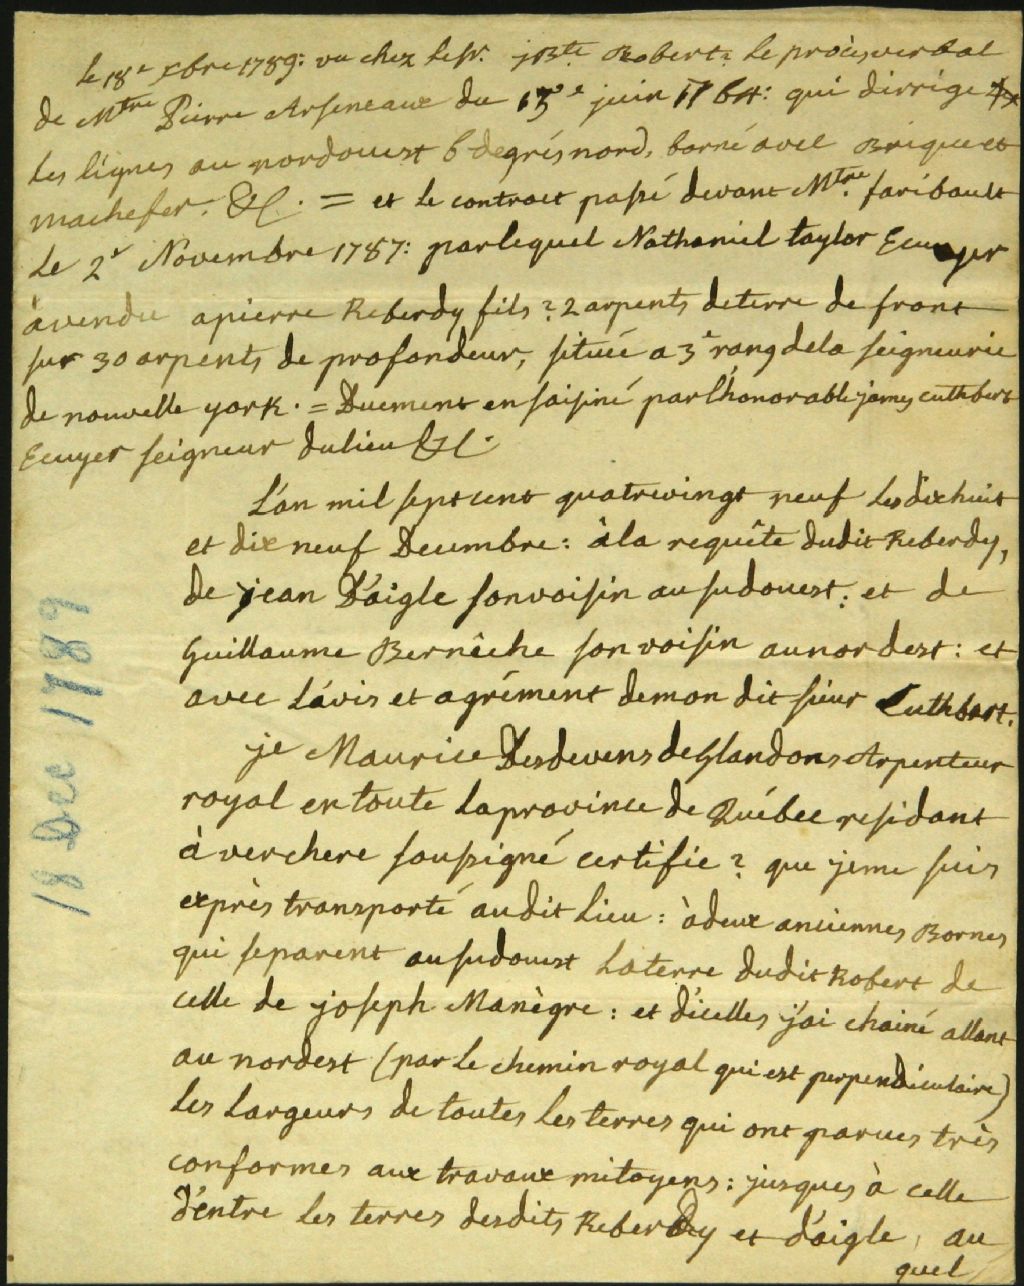 le 18e xbre 1789: vu chez le sr. jBte Robert? le procès verbal
de Mtre Pierre Arseneaux du 13e juin 1764: qui dirrige
les lignes au nordouest 6 degrés nord, borné avec Brique et
machefer. &c. = et le contract passé devant Mtre. faribault
le 2e Novembre 1787: par lequel Nathaniel taylor Ecuyer
à vendu a pierre Reberdy fils? 2 arpents de terre de front
sur 30 arpents de profondeur, située a 3e rang dela seigneurie
de nouvelle york. = Duement ensaisiné par l'honorable james cuthbert
Ecuyer seigneur dulieu &c.
L'an mil sept cent quatrevingt neuf les dixhuit
et dix neuf Decembre: à la requête dudit Reberdy,
de jean D'aigle son voisin au sudouest: et de
Guillaume Bernêche son voisin aunordest: et
avec l'avis et agrément demon dit sieur Cuthbert.
je Maurice Desdevens de Glandons Arpenteur
royal en toute la province de Québec residant
à verchere soussigné certifie? que jeme suis
exprès transporté audit lieu: à deux anciennes Bornes
qui separent au sudouest la terre dudit Robert de
celle de joseph Manègre: et d'icelles j'ai chainé allant
au nordest (par le chemin royal qui est perpendiculaire)
les largeurs de toutes les terres qui ont parues très
conformes aux travaux mitoyens: jusques à celle
d'entre les terres desdits Reberdy et d'aigle, au
quel
18 Dec 1789